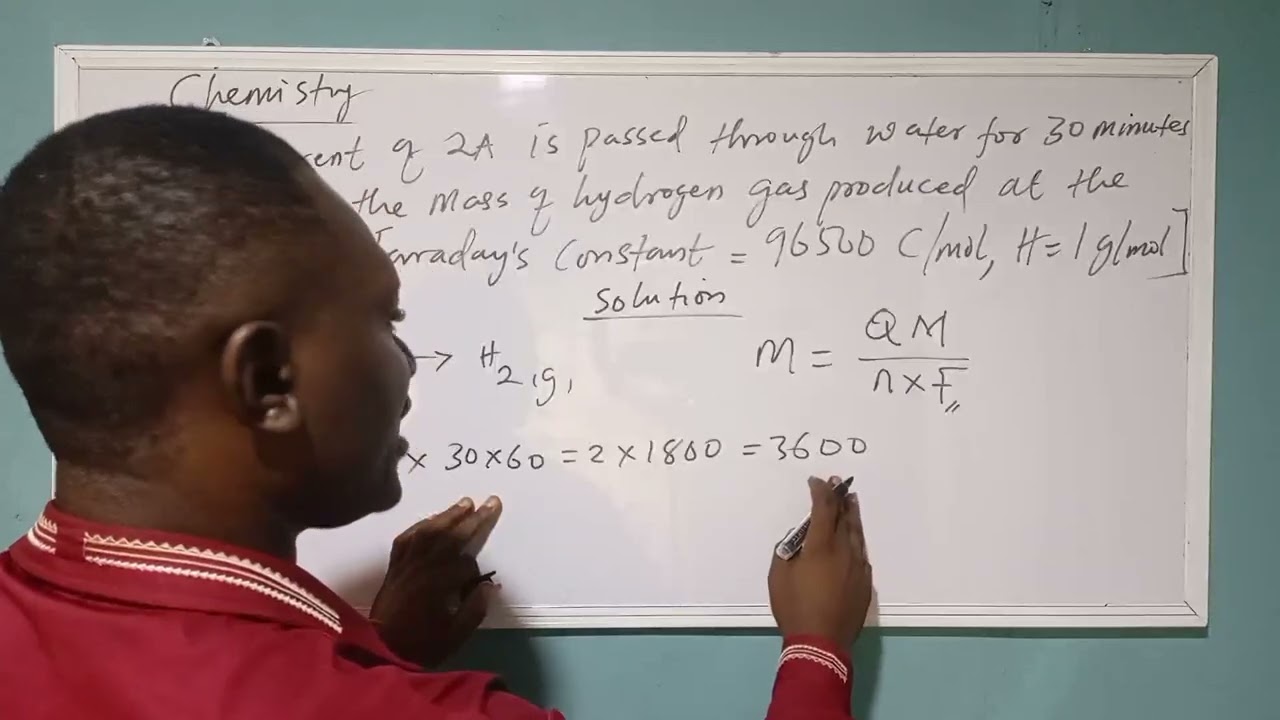 Chemistry
rent of 2A is passed through water for 30 minutes
the mass of hydrogen gas produced at the
Farraday's Constant = 96500 C/mol, H = 1 g/mol]
Solution
→ H2(g)
m = QM / n × F
× 30 × 60 = 2 × 1800 = 3600